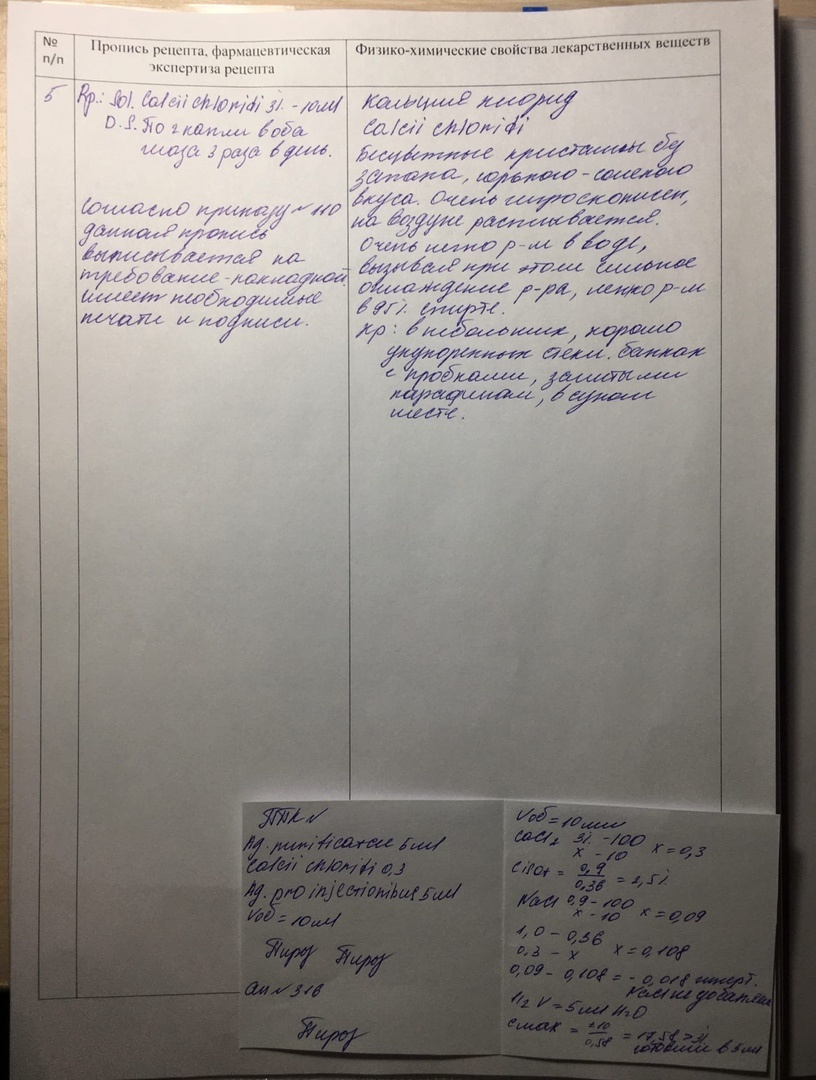 № п/п
Пропись рецепта, фармацевтическая
экспертиза рецепта
Физико-химические свойства лекарственных веществ
5
Rp.: Sol. Calcii chloridi 3% - 10ml
D.S. По 2 капли в оба
глаза 3 раза в день.
Согласно приказу № 110
данная пропись
выписывается на
требование-накладной,
имеет необходимые
печати и подписи.
Кальция хлорид
Calcii chloridi
Бесцветные кристаллы без
запаха, горького-соленого
вкуса. Очень гигроскопичен,
на воздухе расплывается.
Очень легко р-м в воде,
вызывая при этом сильное
охлаждение р-ра, легко р-м
в 95% спирте.
Хр: в небольших, хорошо
укупоренных стекл. банках
с пробками, залитыми
парафином, в сухом
месте.
ППК №
Aq. purificatae 5ml
Calcii chloridi 0,3
Aq. pro injectionibus 5ml
Vоб = 10ml
Пироз Пироз
Ан № 316
Пироз
Vоб = 10мл
CaCl2 3% - 100
x - 10 x = 0,3
Cизот = 0,9/0,36 = 2,5%
NaCl 0,9 - 100
x - 10 x = 0,09
1,0 - 0,36
0,3 - x x = 0,108
0,09 - 0,108 = - 0,018 гиперт.
NaCl не добавляем
1/2 V = 5ml H2O
Cmax =
0,58
= 17,58 > 3%
в 5ml